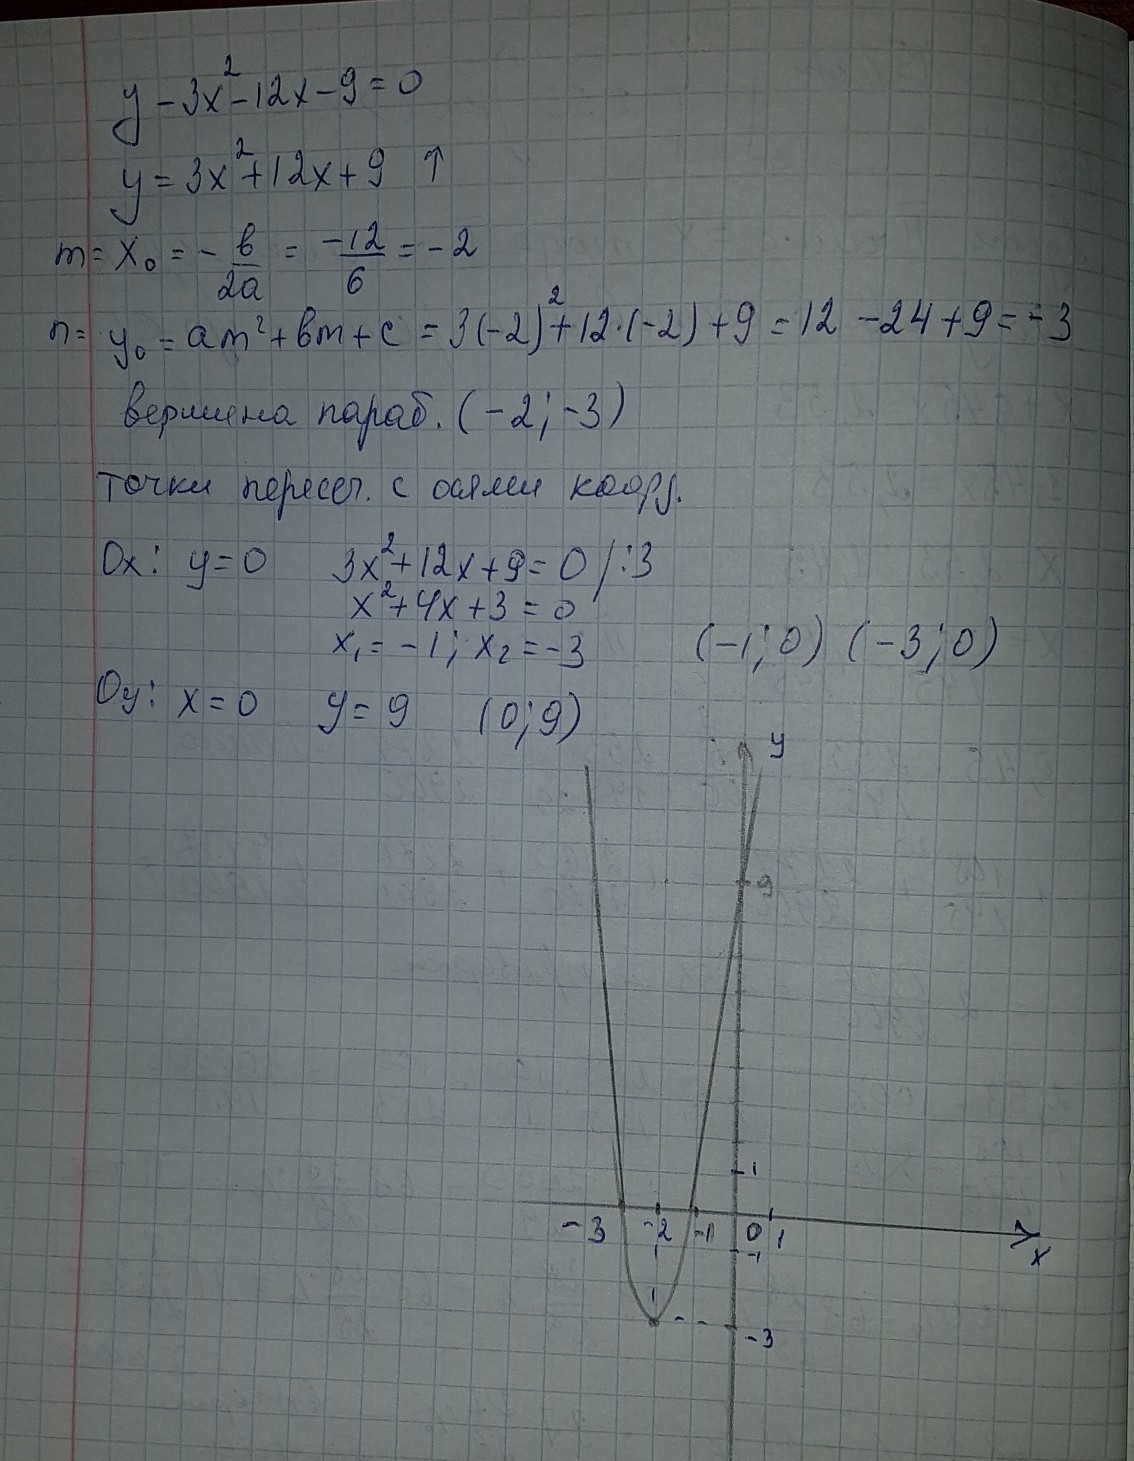 y - 3x² - 12x - 9 = 0
y = 3x² + 12x + 9 ↑
m = x₀ = - в/2a = -12/6 = -2
n = y₀ = am² + вm + c = 3(-2)² + 12·(-2) + 9 = 12 - 24 + 9 = -3
вершина параб. (-2; -3)
точки пересеч. с осями коорд.
Ox: y = 0 3x² + 12x + 9 = 0 /:3
x² + 4x + 3 = 0
x₁ = -1; x₂ = -3 (-1; 0) (-3; 0)
Oy: x = 0 y = 9 (0; 9)
y
9
1
-3 -2 -1 0 1
x
-1
-3